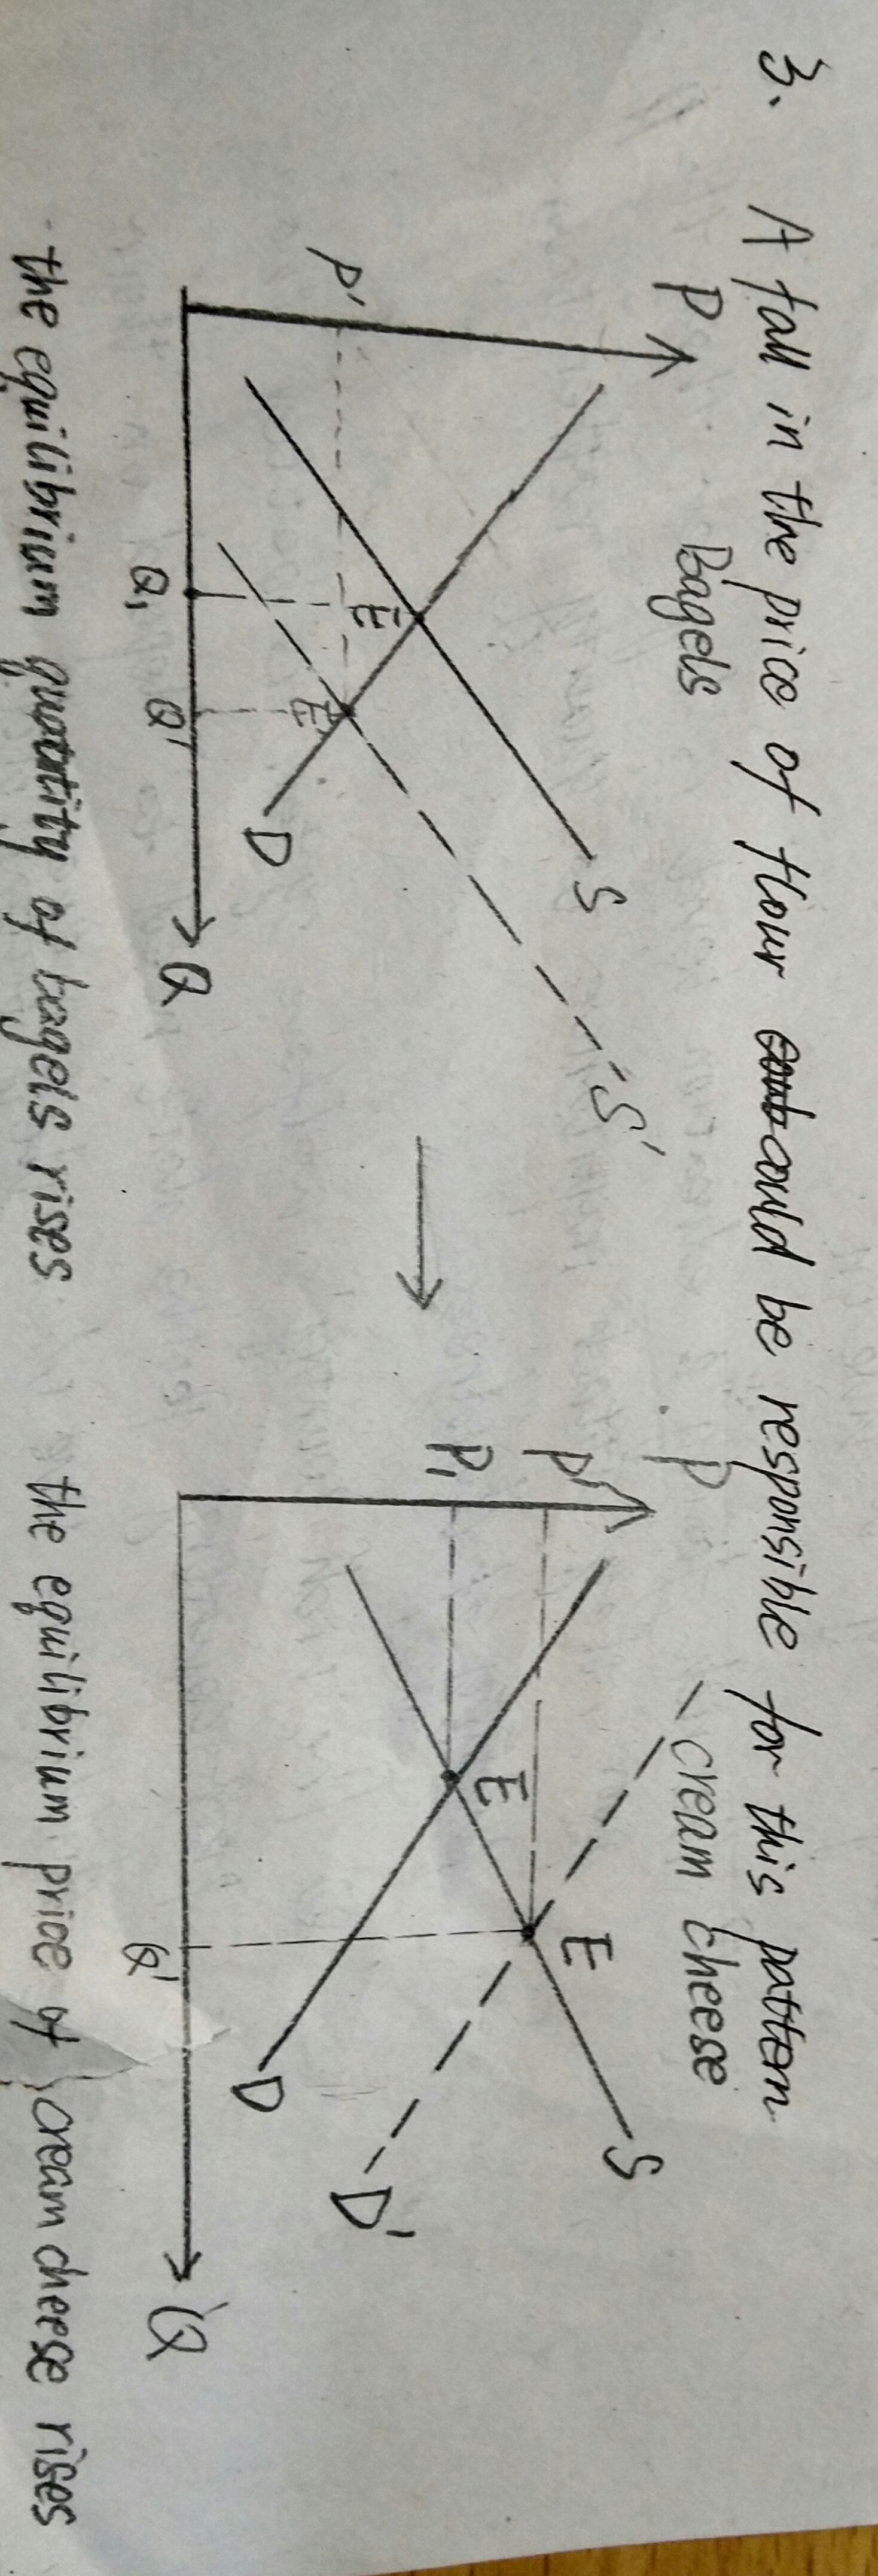 3. A fall in the price of flour could be responsible for this pattern
P Bagels
S
S'
E
E'
P'
D
Q1 Q' Q
P cream cheese
P'
P1
E
E
S
D
D'
Q' Q
the equilibrium quantity of bagels rises
the equilibrium price of cream cheese rises